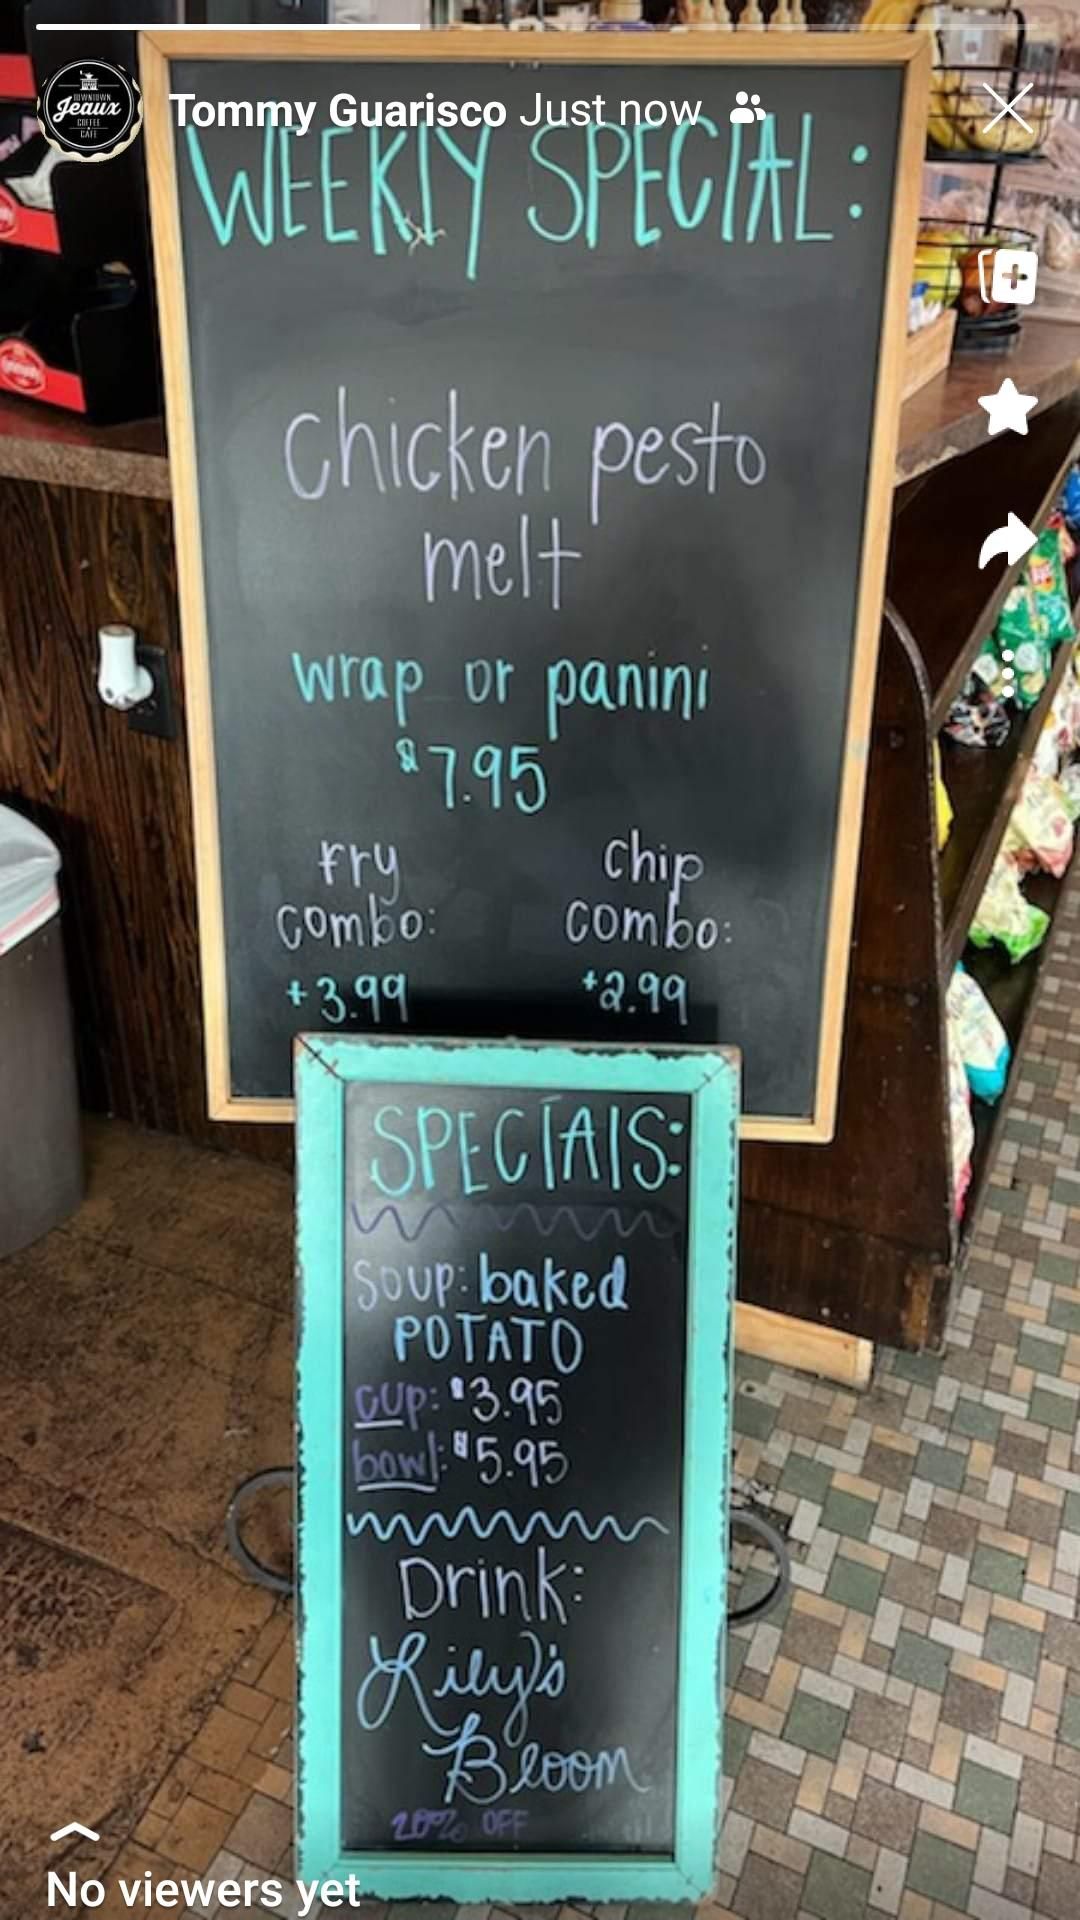 Tommy Guarisco Just now
DOWNTOWN
Jeaux
COFFEE
CAFE
WEEKLY SPECIAL:
chicken pesto
melt
wrap or panini
$7.95
Fry
combo:
+3.99
chip
combo:
+2.99
SPECIALS:
soup: baked
POTATO
cup: $3.95
bowl: $5.95
Drink:
Lily's
Bloom
20% OFF
No viewers yet